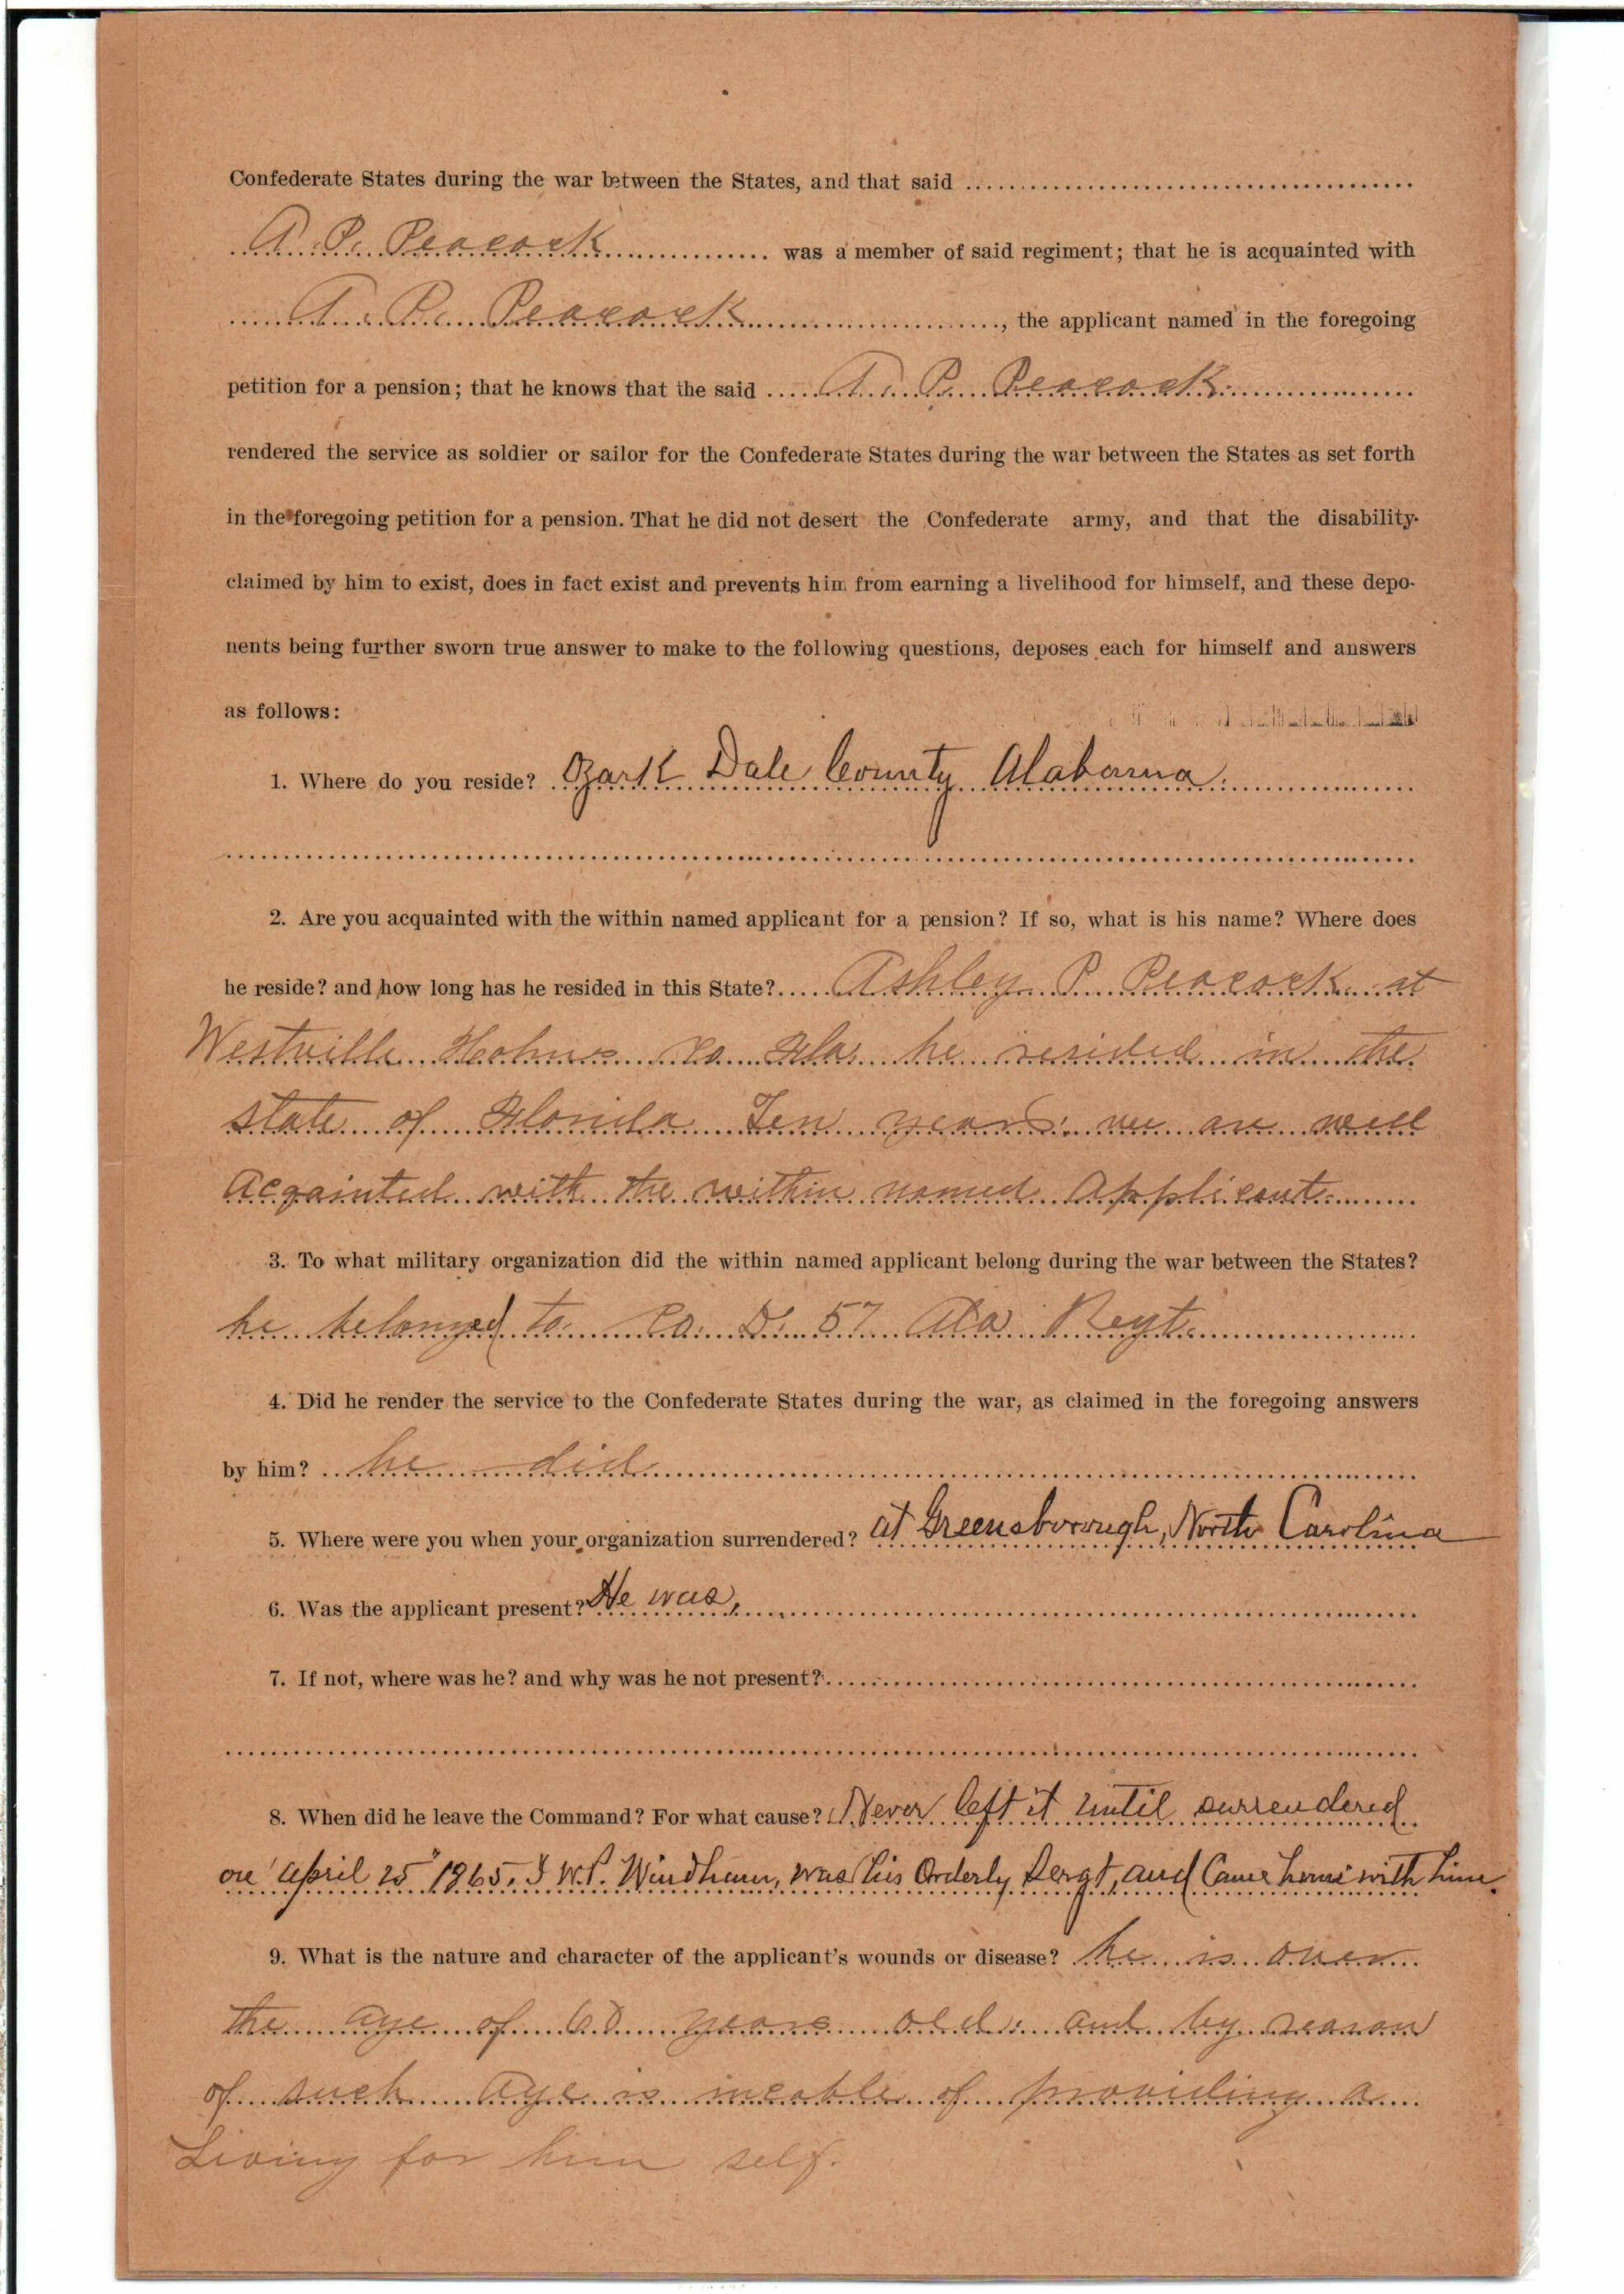 Confederate States during the war between the States, and that said
A. P. Peacock was a member of said regiment; that he is acquainted with
A. P. Peacock, the applicant named in the foregoing
petition for a pension; that he knows that the said A. P. Peacock
rendered the service as soldier or sailor for the Confederate States during the war between the States as set forth
in the foregoing petition for a pension. That he did not desert the Confederate army, and that the disability
claimed by him to exist, does in fact exist and prevents him from earning a livelihood for himself, and these depo-
nents being further sworn true answer to make to the following questions, deposes each for himself and answers
as follows:
1. Where do you reside? Ozark Dale County Alabama.
2. Are you acquainted with the within named applicant for a pension? If so, what is his name? Where does
he reside? and how long has he resided in this State? Ashley P. Peacock at
Westville Holmes Co Fla. he resided in the
state of Florida Ten years. we are well
acqainted with the within named Applicant
3. To what military organization did the within named applicant belong during the war between the States?
he belonged to Co. D. 57 Ala Regt.
4. Did he render the service to the Confederate States during the war, as claimed in the foregoing answers
by him? he did
5. Where were you when your organization surrendered? at Greensborough, North Carolina
6. Was the applicant present? He was,
7. If not, where was he? and why was he not present?
8. When did he leave the Command? For what cause? Never left it until surrendered
on April 25" 1865. I W.P. Windham, was his Orderly Sergt, and Came home with him.
9. What is the nature and character of the applicant's wounds or disease? he is over
the age of 60 years old. and by reason
of such Age is incable of providing a
Living for him self.